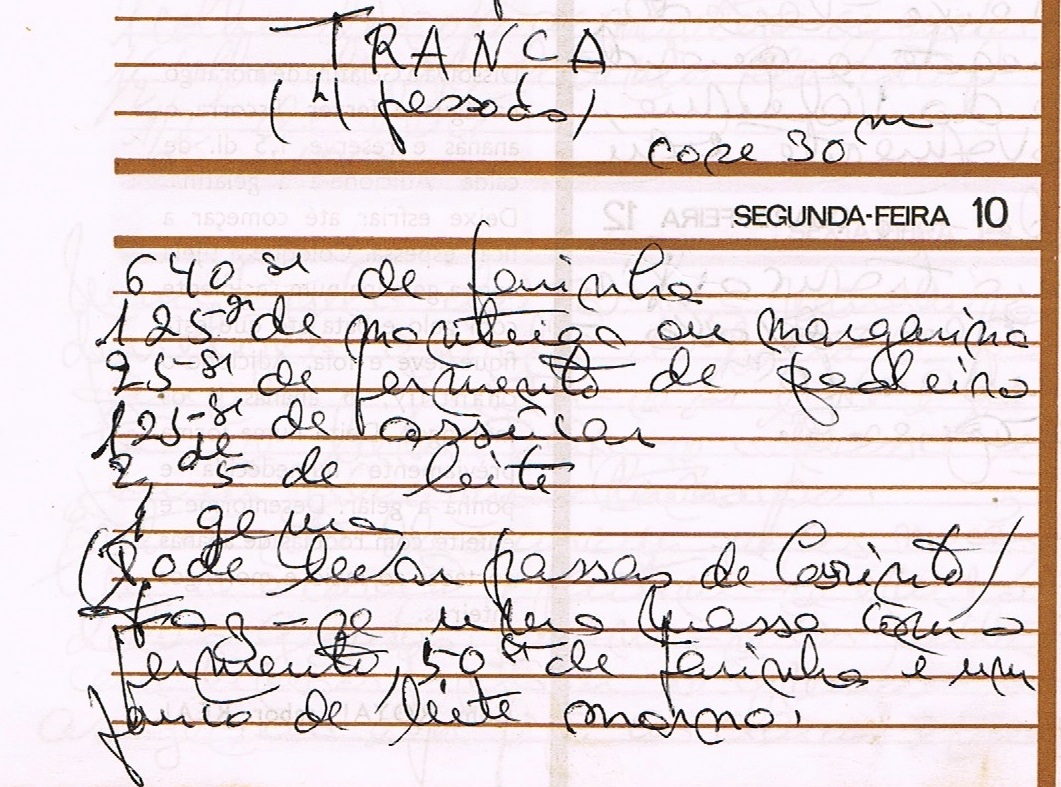 TRANCA
(4 pessoas)
coze 30 m
SEGUNDA-FEIRA 10
640 gr de farinha
125 gr de manteiga ou margarina
25 gr de fermento de padeiro
125 gr de assúcar
2,5 dl de leite
1 gema
(Pode levar passas de Corinto)
Faz-se uma massa com o
fermento, 50 gr de farinha e um
pouco de leite morno.